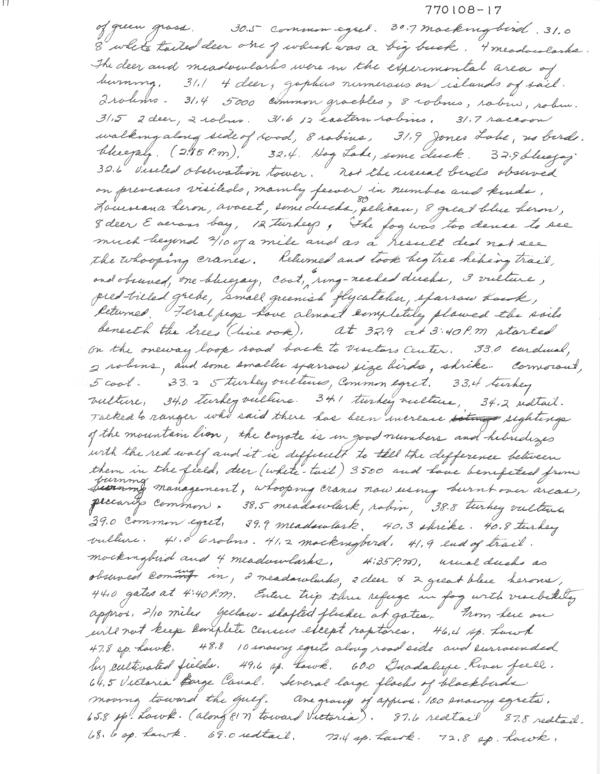 770108-17
of green grass. 30.5 common egret. 30.7 mockingbird. 31.0
8 white tailed deer one of which was a big buck. 4 meadowlarks.
The deer and meadowlarks were in the experimental area of
burning. 31.1 4 deer, gophers numerous on islands of soil.
2 robins. 31.4 5000 common grackles, 8 robins, robin, robin.
31.5 2 deer, 2 robins. 31.6 12 eastern robins. 31.7 raccoon
walking along side of road, 8 robins, 31.9 Jones Lake, no birds.
bluejay. (2:45 P.m). 32.4. Hog Lake, some duck. 32.9 bluejay
32.6 Visited observation tower. Not the usual birds observed
on previous visits, mainly fewer in number and kinds.
Louisiana heron, avocet, some ducks, 30 pelican, 8 great blue heron,
8 deer E across bay, 12 turkeys, The fog was too dense to see
much beyond 2/10 of a mile and as a result did not see
the whooping cranes. Returned and took big tree hiking trail,
and observed, one-bluejay, coot, 6 ring-necked ducks, 3 vulture,
pied-billed grebe, small greenish flycatcher, sparrow hawk,
Returned. Feral pigs have almost completely plowed the soils
beneath the trees (live oak). At 32.9 at 3:40 P.M started
on the oneway loop road back to Visitors Center. 33.0 cardinal,
2 robins, and some smaller sparrow size birds, shrike. Cormorant,
5 coot. 33.2 5 turkey vultures, Common egret. 33.4 turkey
vulture. 34.0 turkey vulture. 34.1 turkey vulture, 34.2 redtail.
Talked to ranger who said there has been increase sightings
of the mountain lion, the coyote is in good numbers and hibridizes
with the red wolf and it is difficult to tell the difference between
them in the field, deer (white-tail) 3500 and have benefited from
burning management, whooping cranes now using burnt over areas,
peccaries common. 38.5 meadowlark, robin, 38.8 turkey vulture
39.0 common egret. 39.9 meadowlark. 40.3 shrike. 40.8 turkey
vulture. 41.0 6 robins. 41.2 mockingbird. 41.9 end of trail.
mockingbird and 4 meadowlarks. 4:35 P.M., usual ducks as
observed coming in, 2 meadowlarks, 2 deer & 2 great blue herons,
44.0 gates at 4:40 P.M. Entire trip thru refuge in fog with visibility
approx. 2/10 miles yellow-shafted flicker at gates. From here on
will not keep complete census except raptores. 46.4 sp. hawk
47.8 sp. hawk. 48.8 10 snowy egrets along road side and surrounded
by cultivated fields. 49.6 sp. hawk. 60.0 Guadalupe River full.
64.5 Victoria Barge Canal. Several large flocks of blackbirds
moving toward the gulf. One group of approx. 100 snowy egrets.
65.8 sp. hawk. (along 81 N toward Victoria). 67.6 redtail 67.8 redtail.
68.6 sp. hawk. 69.0 redtail. 72.4 sp. hawk. 72.8 sp. hawk.